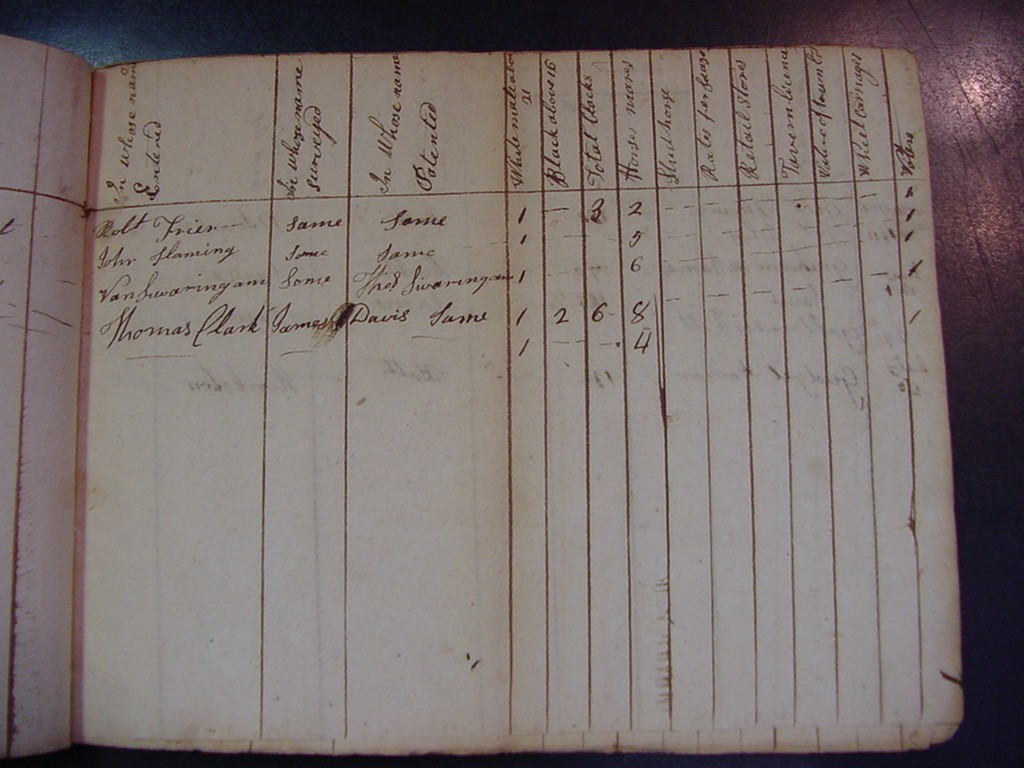 In whose name Entered
In whose name surveyed
In Whose name Patented
White males above 21
Black above 16
Total blacks
Horses mares
Stud horse
Rates per season
Retail Stores
Tavern license
Value of town lots
Wheel Carriages
Voters
Robt Frier same same 1 - 3 2 1
John Flaming same same 1 5 1
Van Swaringam Same Thos Swaringam 1 6 1
Thomas Clark James Davis Same 1 2 6 8 1
1 4